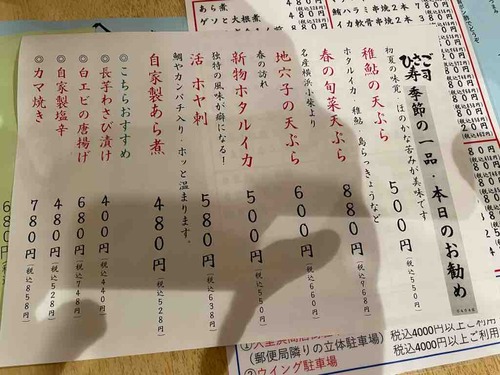 ひさご寿司 季節の一品・本日のお勧め
初夏の味覚 ほのかな苦みが美味です
稚鮎の天ぷら 500円(税込550円)
ホタルイカ、稚鮎、島らっきょうなど
春の旬菜天ぷら 880円(税込968円)
名産横浜小柴より
地穴子の天ぷら 600円(税込660円)
春の訪れ
新物ホタルイカ 500円(税込550円)
独特の風味が癖になる!
活 ホヤ刺 580円(税込638円)
鯛やカンパチ入り、ホッと温まります。
自家製あら煮 480円(税込528円)
◎こちらおすすめ
◎長芋わさび漬け 400円(税込440円)
◎白エビの唐揚げ 680円(税込748円)
◎自家製塩辛 480円(税込528円)
◎カマ焼き 780円(税込858円)
あら煮
ゲソと大根煮
鮪ハラミ串焼2本
イカ軟骨串焼2本
(郵便局隣りの立体駐車場)
②ウイング駐車場
税込4000円以上ご利用
税込4000円以上ご利用